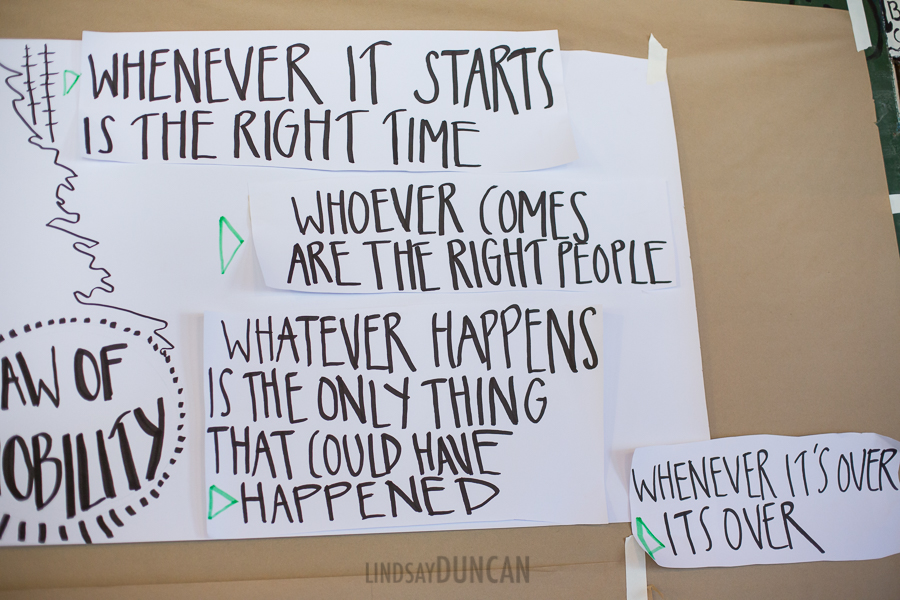 WHENEVER IT STARTS
IS THE RIGHT TIME
WHOEVER COMES
ARE THE RIGHT PEOPLE
WHATEVER HAPPENS
IS THE ONLY THING
THAT COULD HAVE
HAPPENED
AW OF
OBILITY
WHENEVER IT'S OVER
ITS OVER
LINDSAYDUNCAN